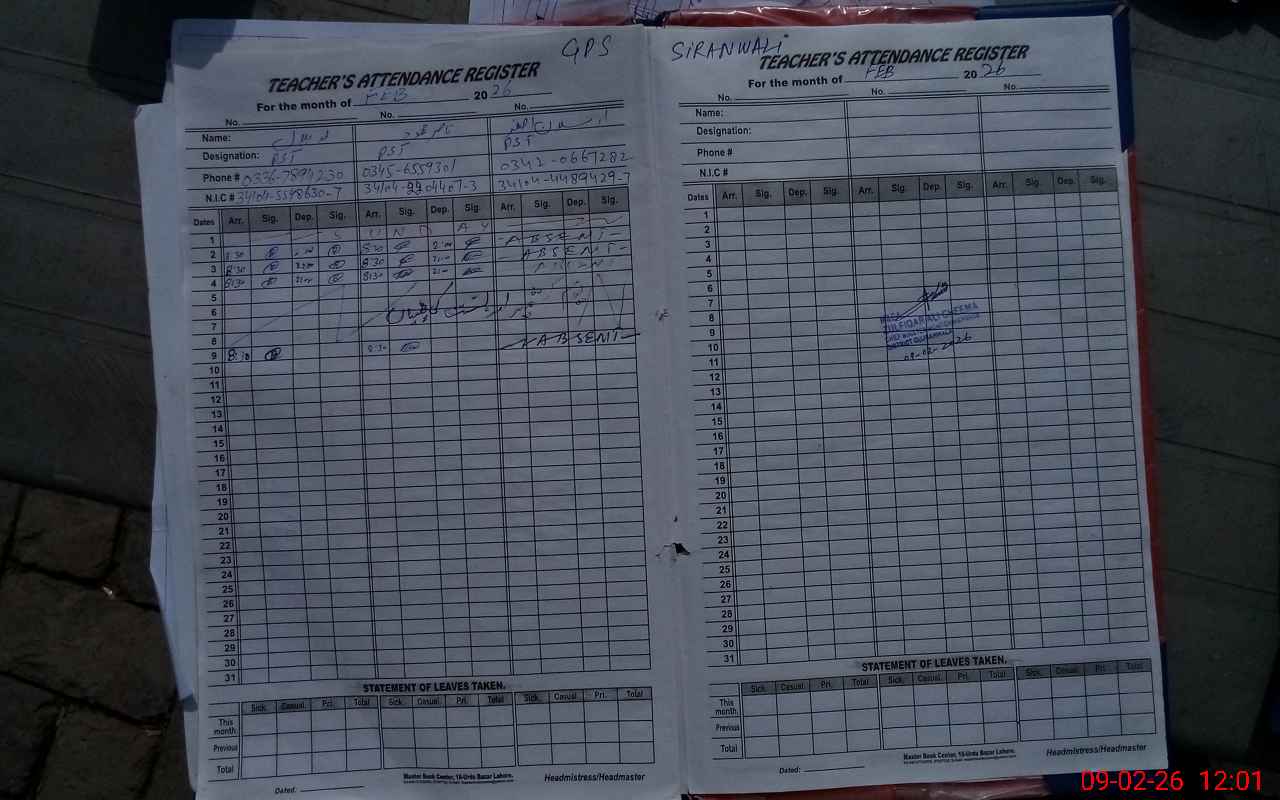 GPS SIRANWALI
TEACHER'S ATTENDANCE REGISTER
For the month of FEB 2026
No. No. No.
Name:
Designation: PST PST PST
Phone # 0336-7894230 0345-6559301 0342-0667282
N.I.C # 34104-5598630-7 34104-2204407-3 34104-4489429-7
Dates Arr. Sig. Dep. Sig. Arr. Sig. Dep. Sig. Arr. Sig. Dep. Sig.
1 SUNDAY
2 8:30 8:30 2:00 -ABSENT-
3 8:30 8:30 -ABSENT-
4 8:30 8:30 ABSENT
5
6
7
8
9 8:30 8:30 -ABSENT-
10
11
12
13
14
15
16
17
18
19
20
21
22
23
24
25
26
27
28
29
30
31
STATEMENT OF LEAVES TAKEN.
Sick. Casual. Pri. Total Sick. Casual. Pri. Total Sick. Casual. Pri. Total
This month.
Previous
Total
Master Book Center, 16-Urdu Bazar Lahore.
Headmistress/Headmaster
Dated:
TEACHER'S ATTENDANCE REGISTER
For the month of FEB 2026
No. No. No.
Name:
Designation:
Phone #
N.I.C #
Dates Arr. Sig. Dep. Sig. Arr. Sig. Dep. Sig. Arr. Sig. Dep. Sig.
1
2
3
4
5
6
7
8
9
10
11
12
13
14
15
16
17
18
19
20
21
22
23
24
25
26
27
28
29
30
31
ZULFIQAR ALI CHEEMA
09-02-2026
STATEMENT OF LEAVES TAKEN.
Sick. Casual. Pri. Total Sick. Casual. Pri. Total Sick. Casual. Pri. Total
This month.
Previous
Total
Master Book Center, 16-Urdu Bazar Lahore.
Headmistress/Headmaster
Dated:
09-02-26 12:01